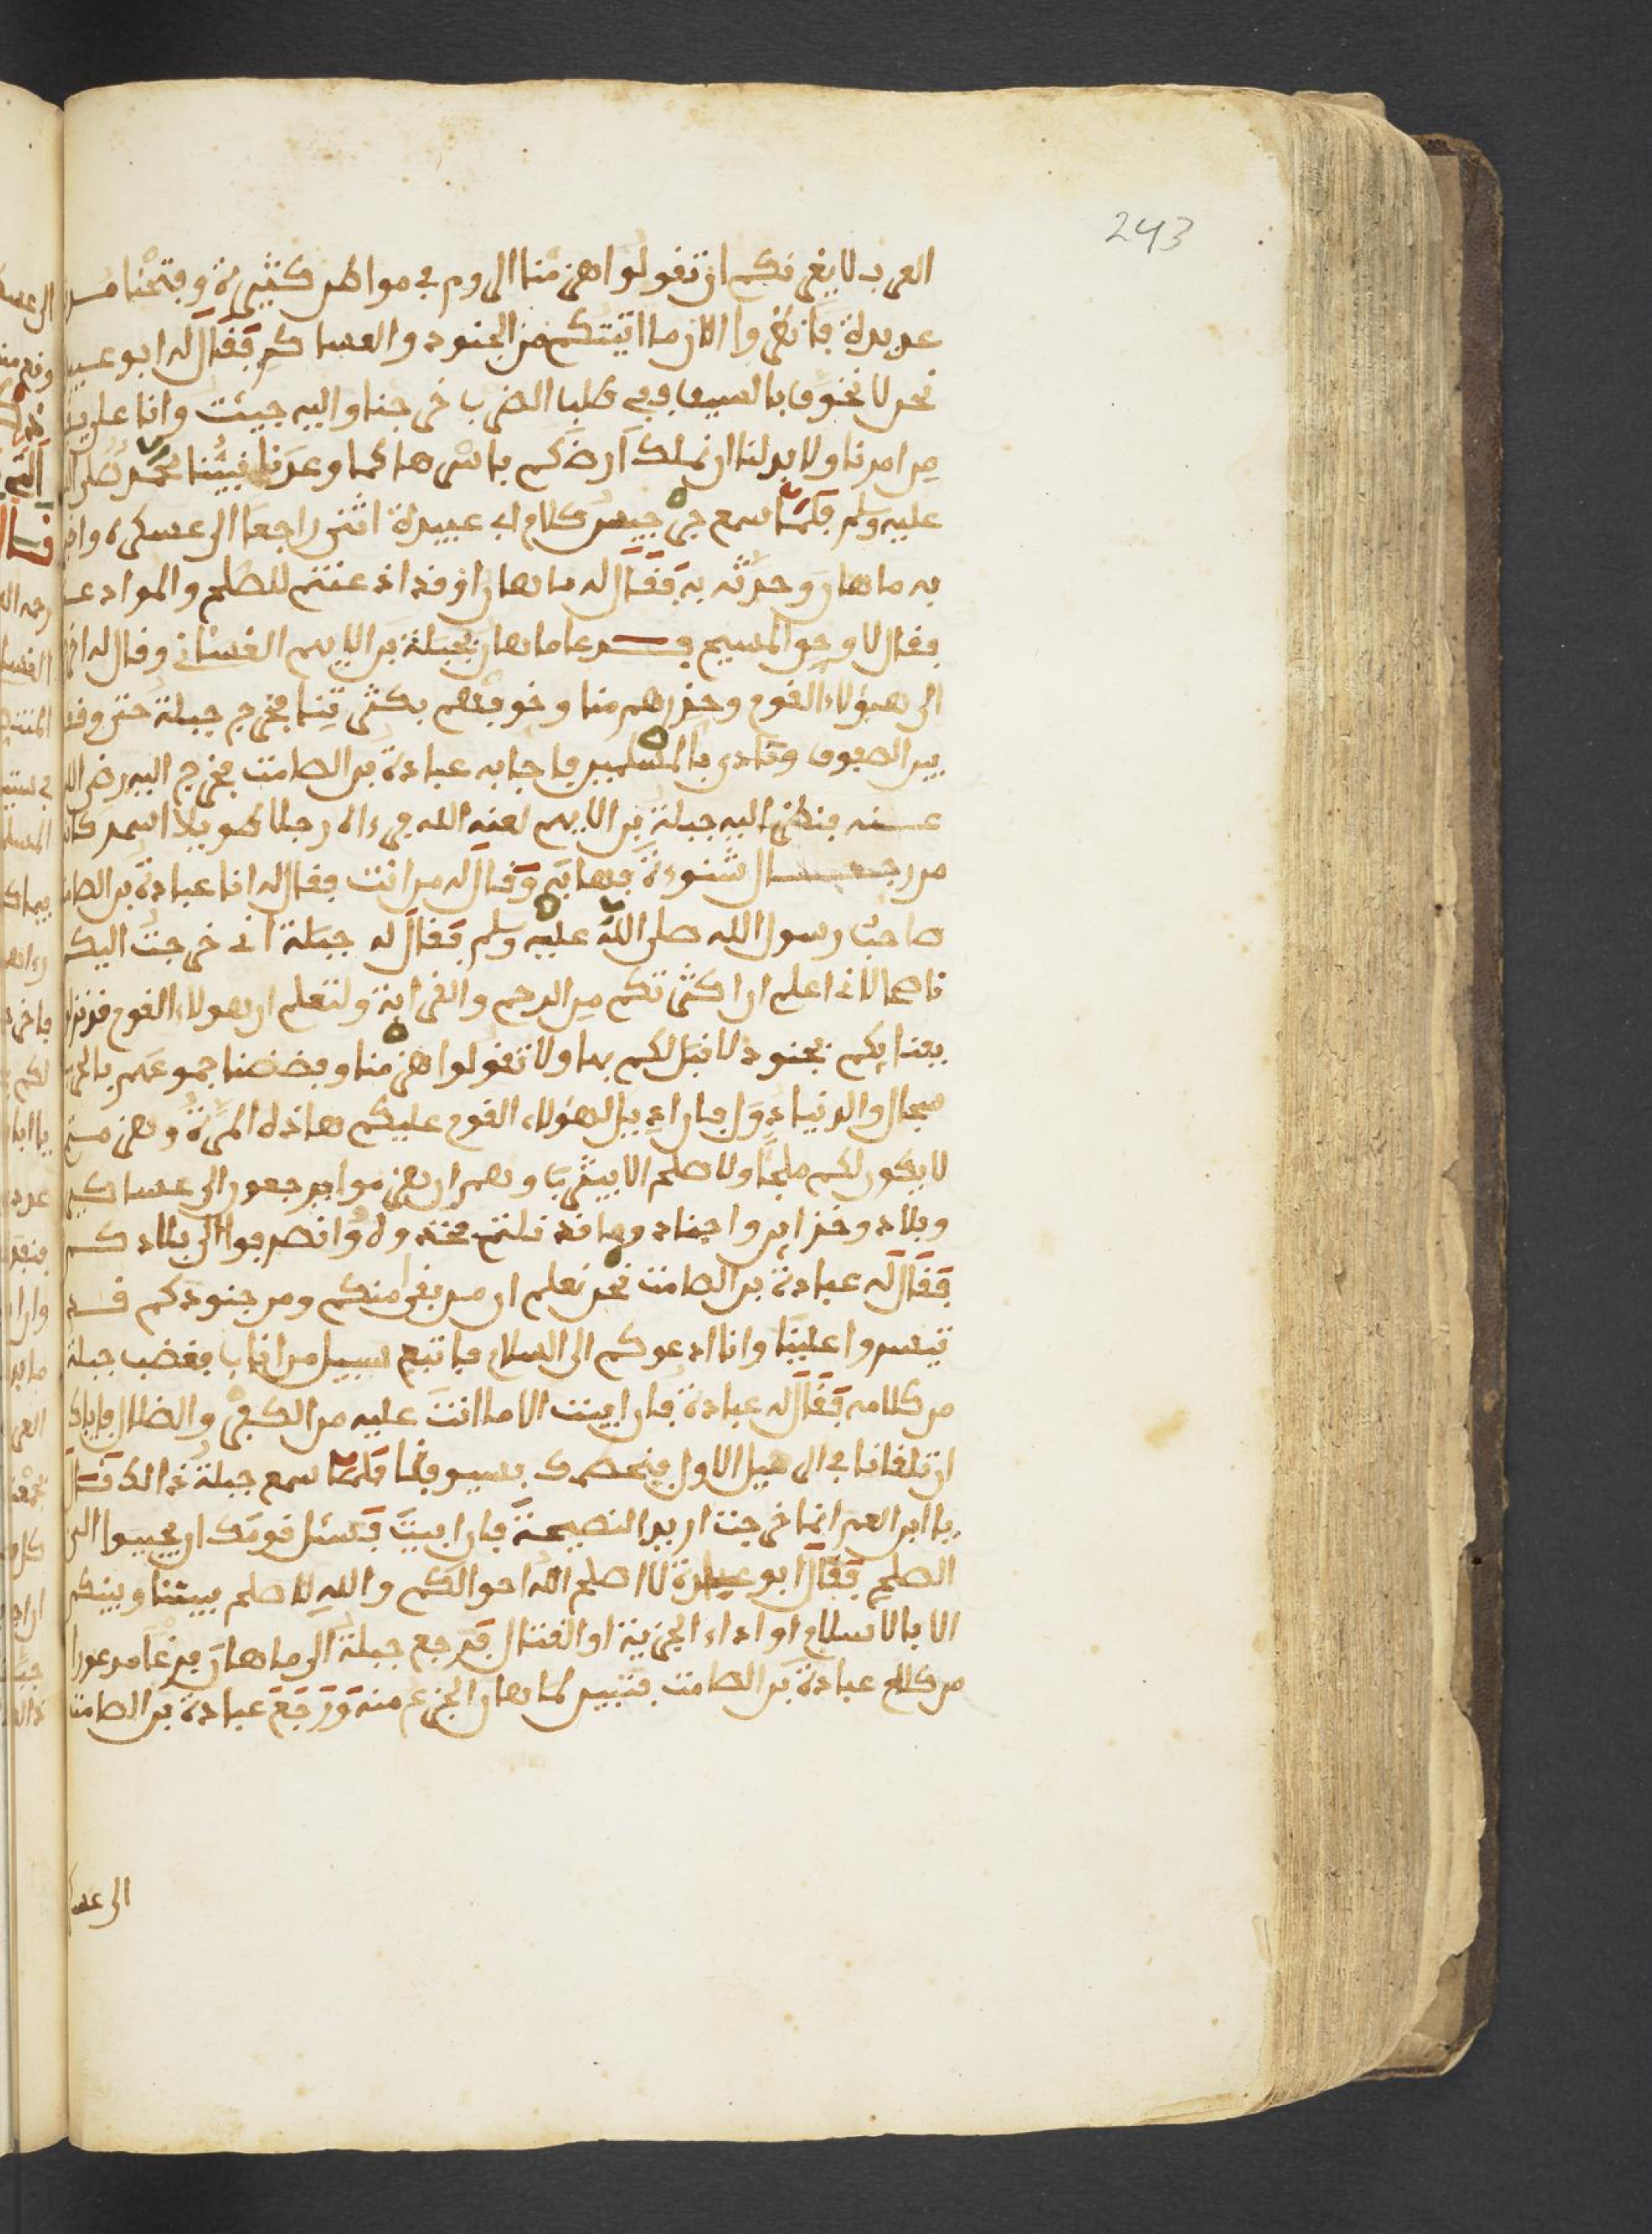 243
العرب لا يغرنكم ان تقولوا هزمنا الروم في مواطن كثيرة وفتحنا مدن
عديدة فانظروا الان ما اتيتكم من الجنود والعساكر فقال له ابو عبيد
نحن لا نخوف بالسيف وفي طلب الضرب خرجنا واليه جيئت وانا على يقين
من امرنا ولا بد لنا ان نملك ارضكم باسرها كما وعدنا نبينا محمد صلى الله
عليه وسلم فلما سمع جرجيس كلام ابي عبيدة انثنى راجعا الى عسكره واخبر
به ماهان وحدثه به فقال له ماهان او قد اذعنتم للصلح والموادعة
فقال لا وحق المسيح فدعا ماهان بجبلة بن الايهم الغساني وقال له اخرج
الى هؤلاء القوم وحذرهم منا وخوفهم بكثرتنا فخرج جبلة حتى وقف
بين الصفوف ونادى بالمسلمين فاجابه عبادة بن الصامت فخرج اليه رضي الله
عنه فنظر اليه جبلة بن الايهم لعنه الله فرءاه رجلا طويلا اسمر كانه
من رجال شنوءة فهابه وقال له من انت فقال له انا عبادة بن الصامت
صاحب رسول الله صلى الله عليه وسلم فقال له جبلة اني خرجت اليكم
ناصحا لاني اعلم ان اكثركم من الرحم والقرابة ولتعلم ان هولاء القوم قد نزلوا
بفنايكم بجنود لا قبل لكم بها ولا تقولوا هزمنا وفضضنا جموعهم بالحرب
سجال والدنيا دول فان اديل لهؤلاء القوم عليكم هاذه المرة وهزمتم
لا يكون لكم ملجأ ولا صلح الا بيثرب وهم ان هزموا يرجعون الى عساكر
وبلاد وخزاين واجناد وما قد نلتم فخذوه وانصرفوا الى بلادكم
فقال له عبادة بن الصامت نحن نعلم ان من بقي منكم ومن جنودكم قد
تيسروا علينا وانا ادعوكم الى السلام فاتبع سبيل من اناب فغضب جبلة
من كلامه فقال له عبادة فان ابيت الا ما انت عليه من الكفر والضلال فاياك
ان تلقانا في الرعيل الاول فنحصدك بسيوفنا فلما سمع جبلة ذالك قال
يا ابن العم انما خرجت اريد النصيحة فان ابيت فسئل قومك ان يجيبوا الى
الصلح فقال ابو عبيدة لا اصلح الله احوالكم والله لا صلح بيننا وبينكم
الا بالاسلام او اداء الجزية او القتال فرجع جبلة الى ماهان فزعا مرعوبا
من كلام عبادة بن الصامت فتبين لماهان الجزع منه ورجع عبادة بن الصامت
الى عسا